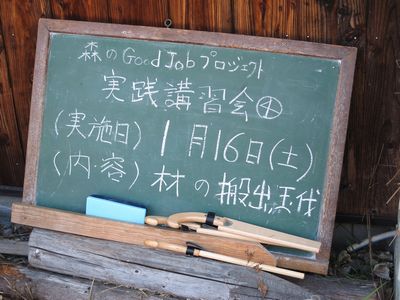 森のGood Jobプロジェクト
実践講習会④
(実施日) 1月16日(土)
(内・容) 材の搬出玉伐